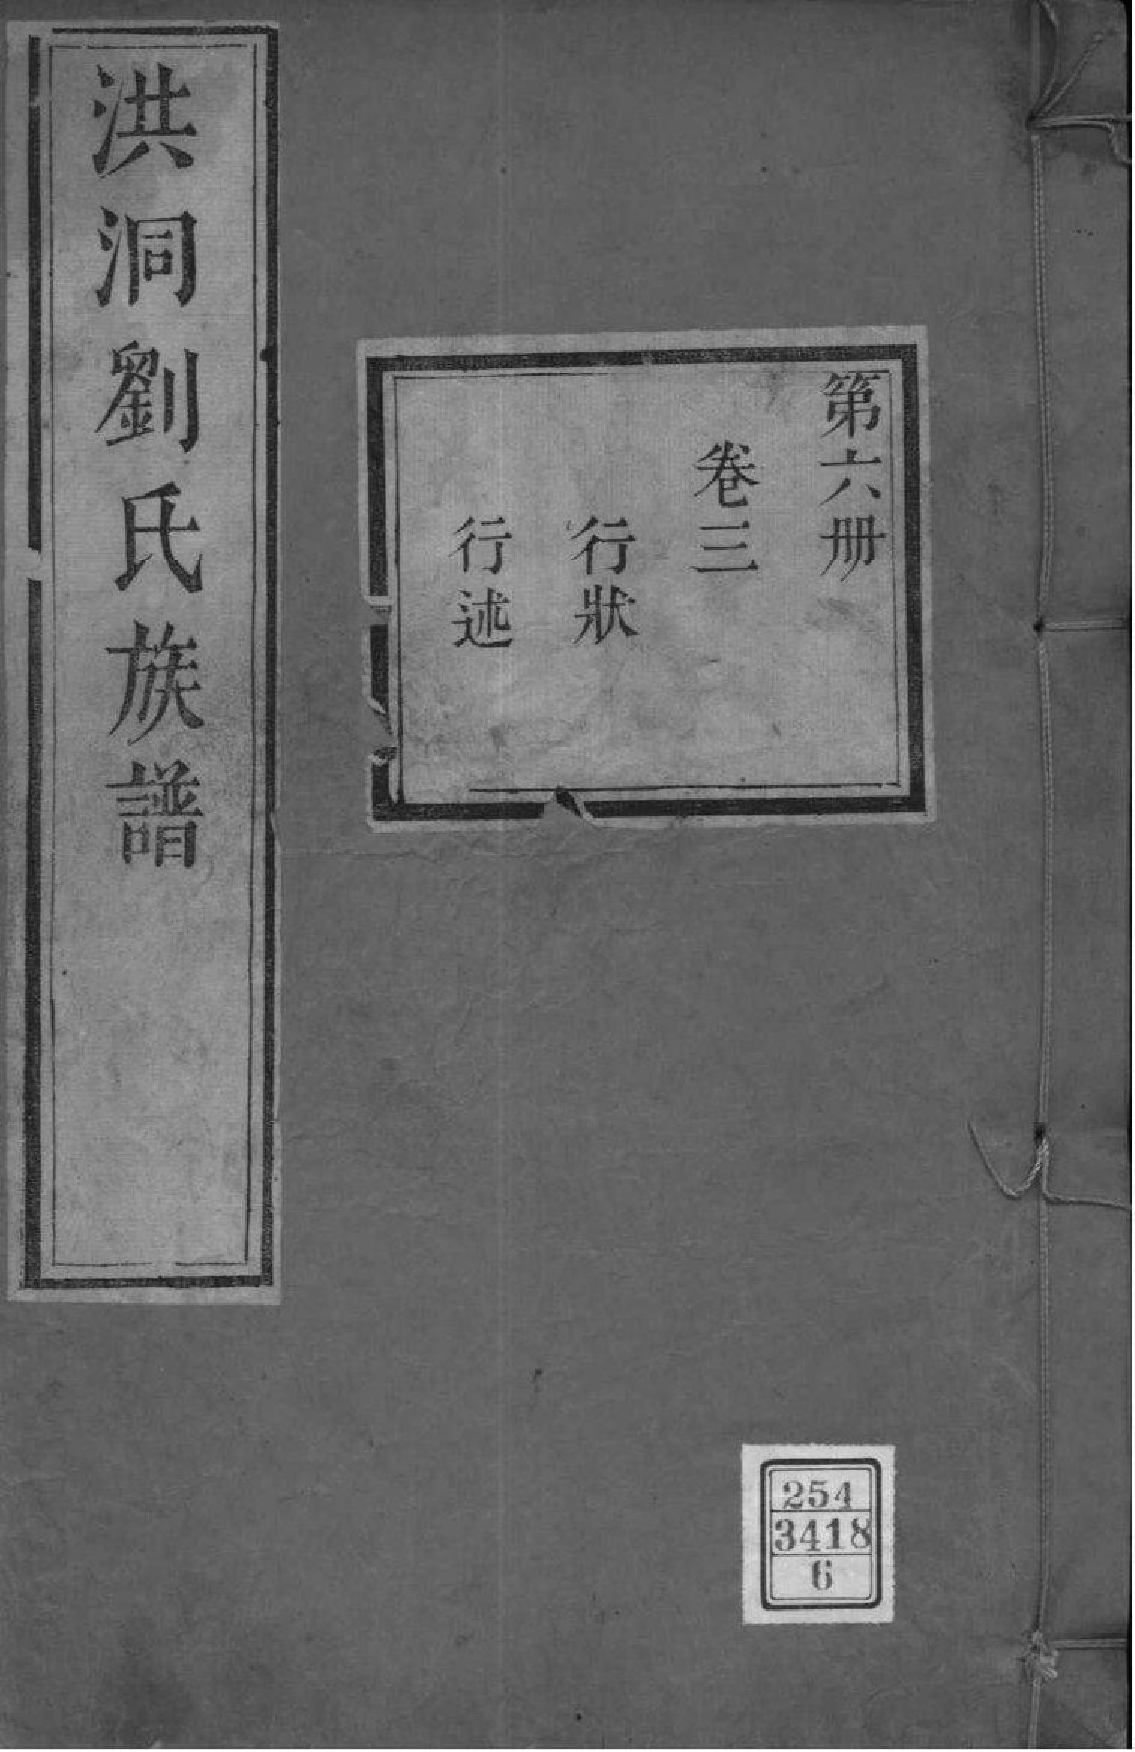 洪洞劉氏族譜
第六册
卷三
行狀
行述
254
3418
6